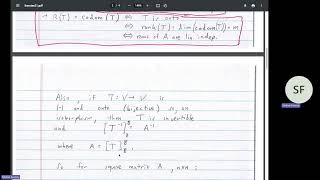 → R(T) = codom(T) ⇔ T is onto
⇔ rank(T) = dim(codom(T)) = m
⇔ rows of A are lin. indep.
Also, if T: V → V is
1-1 and onto (bijective) so, an
isomorphism, then T is invertible
and [T⁻¹]_B^B = A⁻¹
where A = [T]_B^B
So for square matrix A, n×n:
SF